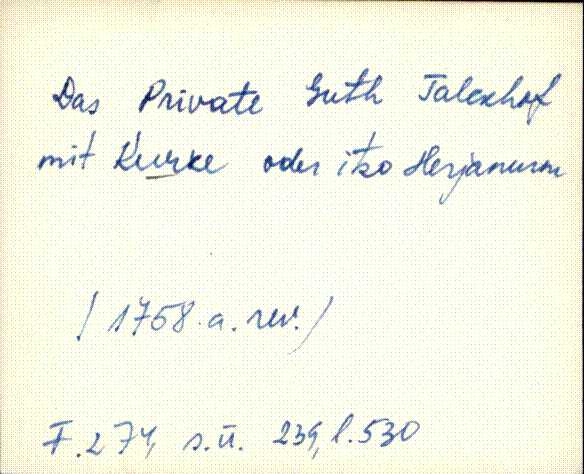 Das Private Guth Talexhof
mit Kurke oder itzo Herjanurm
/ 1758. a. rev. /
F. 274, s.ü. 239, l. 530